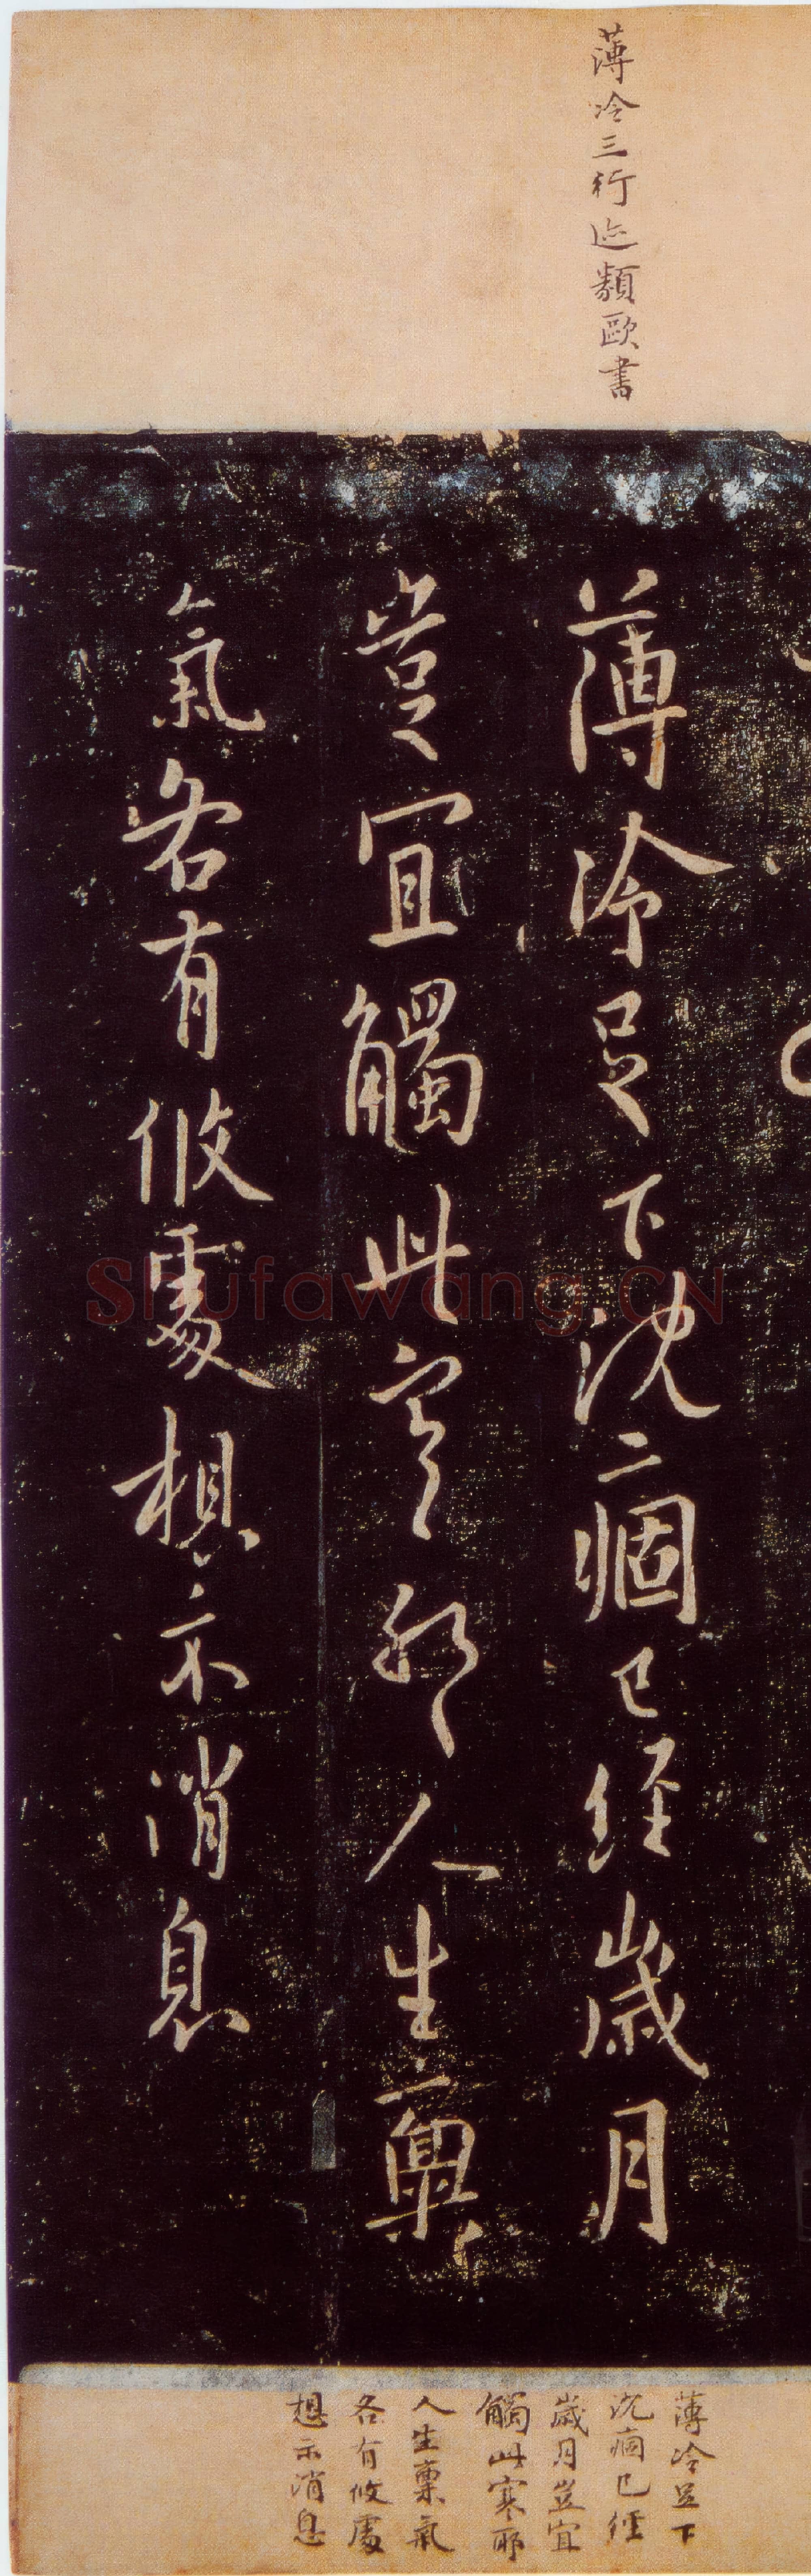 薄冷三行迹類歐書
薄冷足下沈痼已經歲月
豈宜觸此寒耶人生稟
氣各有攸處想示消息
薄冷足下
沈痼已經
歲月豈宜
觸此寒耶
人生稟氣
各有攸處
想示消息
Shufawang.CN